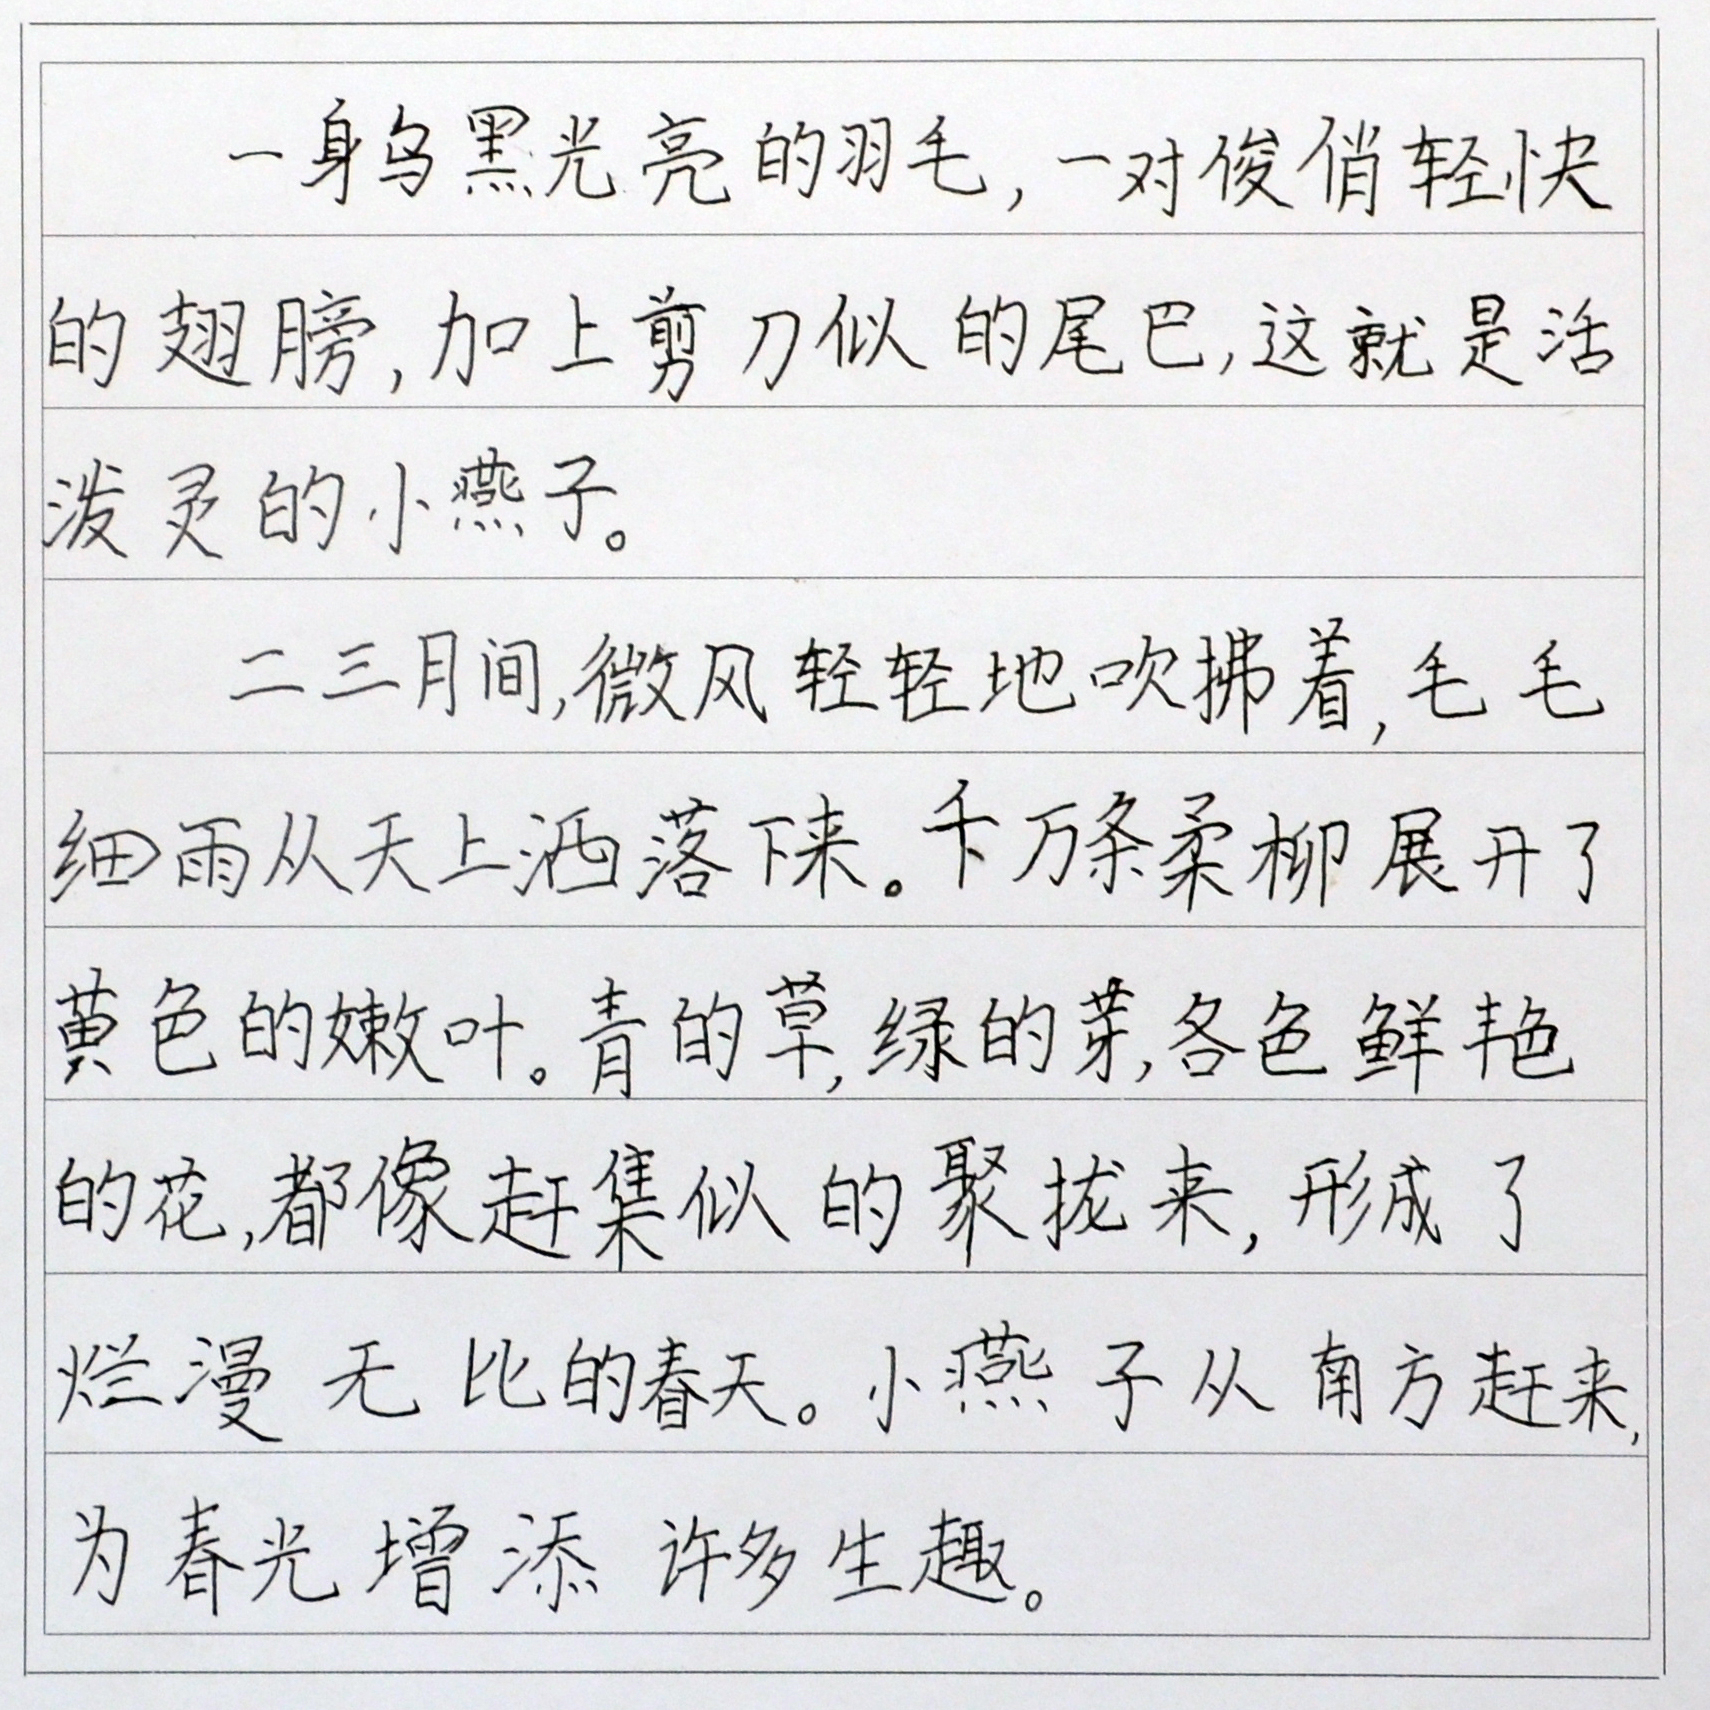 一身乌黑光亮的羽毛,一对俊俏轻快
的翅膀,加上剪刀似的尾巴,这就是活
泼灵的小燕子。
二三月间,微风轻轻地吹拂着,毛毛
细雨从天上洒落下来。千万条柔柳展开了
黄色的嫩叶。青的草,绿的芽,各色鲜艳
的花,都像赶集似的聚拢来,形成了
烂漫无比的春天。小燕子从南方赶来,
为春光增添许多生趣。